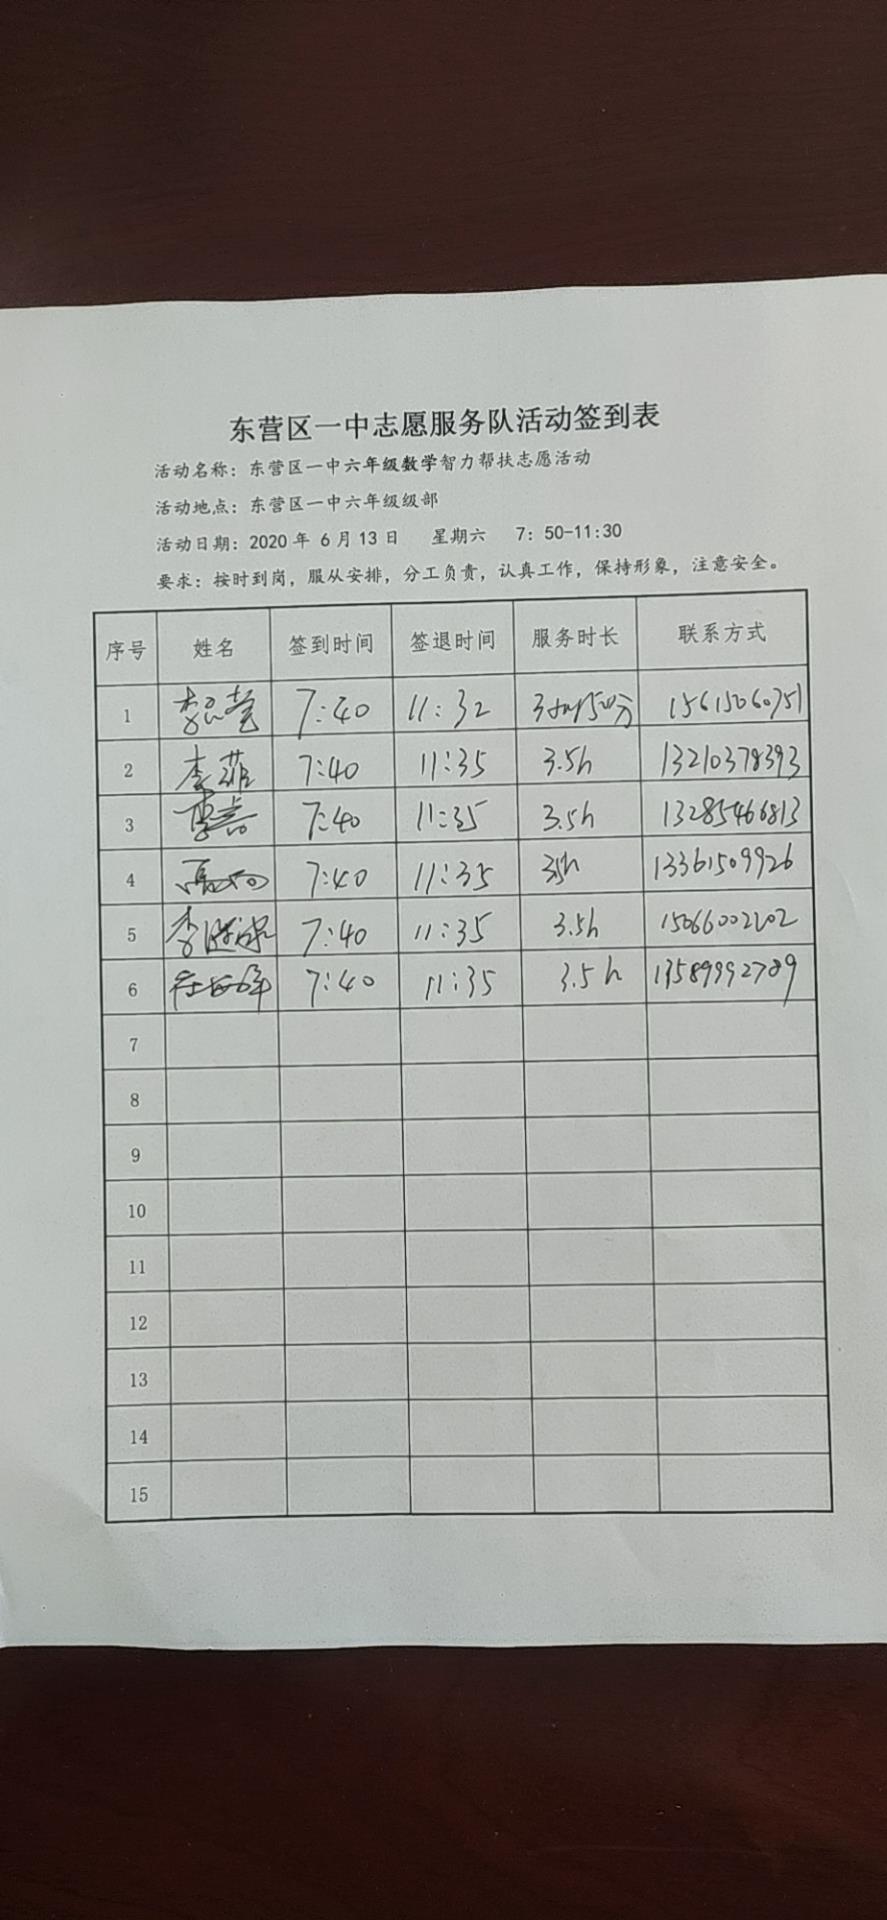 东营区一中志愿服务队活动签到表
活动名称：东营区一中六年级数学智力帮扶志愿活动
活动地点：东营区一中六年级级部
活动日期：2020 年 6 月 13 日 星期六 7：50-11:30
要求：按时到岗，服从安排，分工负责，认真工作，保持形象，注意安全。
序号 姓名 签到时间 签退时间 服务时长 联系方式
1 7:40 11:32 15615060751
2 李菲 7:40 11:35 3.5h 13210378393
3 7:40 11:35 3.5h 13285466813
4 7:40 11:35 3.5h 13361509926
5 7:40 11:35 3.5h 15066002202
6 7:40 11:35 3.5h 13589992789
7
8
9
10
11
12
13
14
15